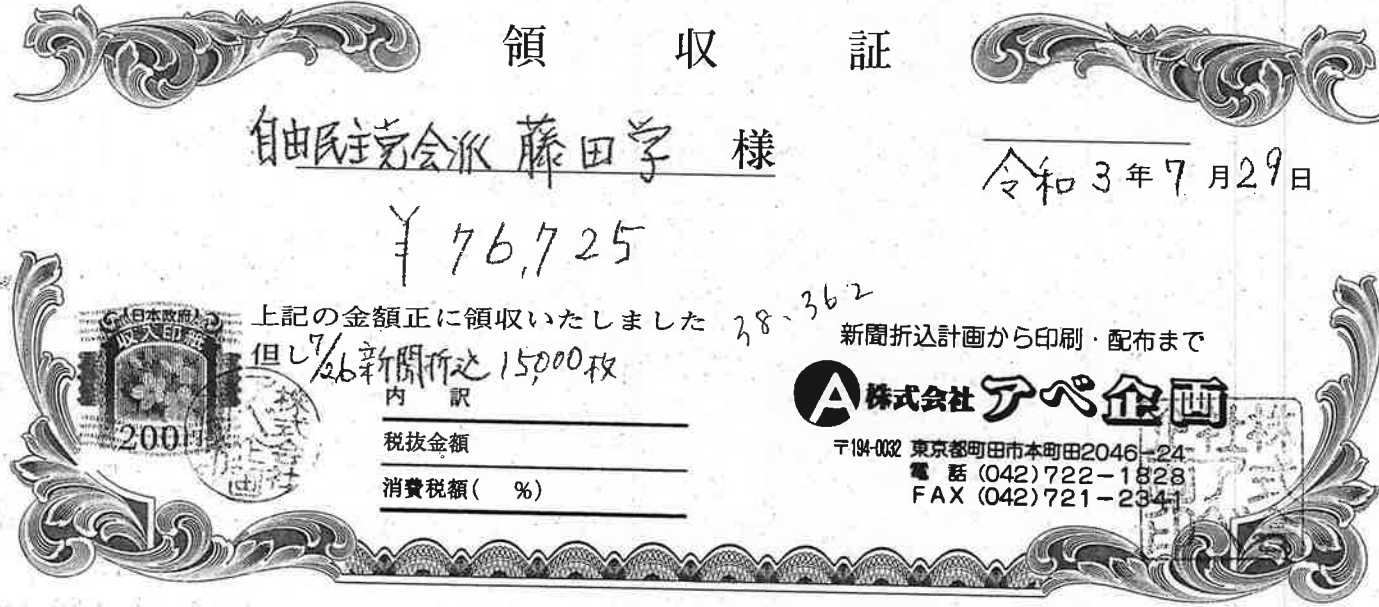 領収証
自由民主党会派 藤田学 様
令和3年7月29日
¥76,725
上記の金額正に領収いたしました
38、362
但し7/26新聞折込 15,000枚
内訳
税抜金額
消費税額( %)
日本政府
収入印紙
200円
株式会社
新聞折込計画から印刷・配布まで
A 株式会社 アベ企画
〒194-0032 東京都町田市本町田2046-24
電話 (042)722-1828
FAX (042)721-2341